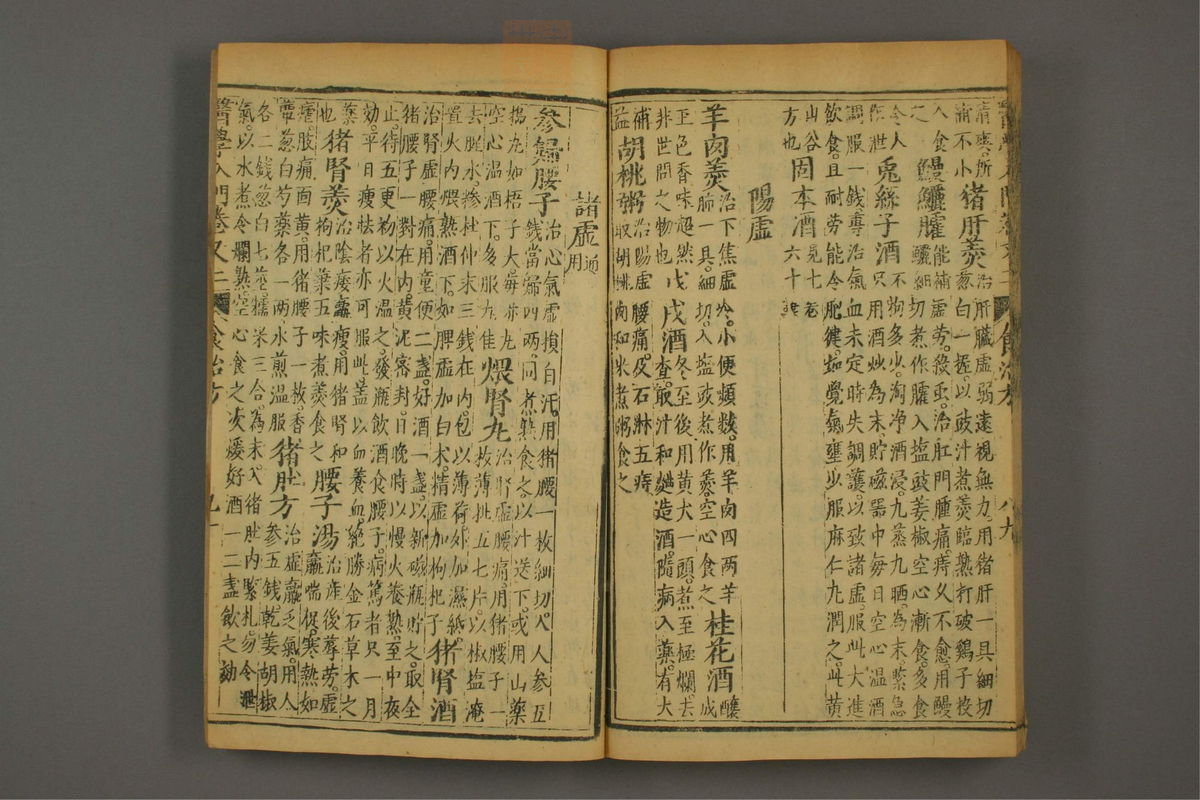 猪肝羹
治肝臟虛弱遠視無力用猪肝一具細切
補不小
葱白一握以豉汁煮羹臨熟打破鷄子投
入食之
鰻鱺臛
能補虛勞殺虫治肛門腫痛痔久不愈用鰻
鱺細切煮作臛入塩豉姜椒空心漸食多食
令人
作泄
兎絲子酒
不拘多少淘净酒浸九蒸九晒為末藥急
只用酒炒為末貯磁器中每日空心温酒
調服一錢專治氣血未定時失調護以致諸虛服此大進
飲食且耐勞能令肥健如覺氣壅少服麻仁丸潤之此黄
山谷
方也
固本酒
見七卷
六十
陽虛
羊肉羹
治下焦虛冷小便頻數用羊肉四两羊
肺一具細切入塩豉煮作羹空心食之
桂花酒
釀
成
至色香味超然
非世間之物也
戌酒
冬至後用黄犬一頭煮至極爛去
查取汁和麯造酒隨病入藥有大
補
益
胡桃粥
治陽虛腰痛及石淋五痔
取胡桃肉和米煮粥食之
諸虛
通用
參歸腰子
治心氣虛損自汗用猪腰一枚細切人參五
錢當歸四两同煮熟食之以汁送下或用山藥
搗丸如梧子大每卅丸
空心温酒下多服尤佳
煨腎丸
治腎虛腰痛用猪腰子一
枚薄批五七片以椒塩淹
去腥水摻杜仲末三錢在內包以薄荷外加濕紙
置火內煨熟酒下如脾虛加白术精虛加枸杞子
猪腎酒
治腎虛腰痛用童便二盞好酒一盞以新磁瓶貯之取全
猪腰子一對在內黄泥密封日晚時以慢火養熟至中夜
止待五更初以火温之發瓶飲酒食腰子病篤者只一月
効平日瘦怯者亦可服此盖以血養血絕勝金石草木之
藥
也
猪腎羹
治陰痿羸瘦用猪腎和
枸杞葉五味煮羹食之
腰子湯
治產後蓐勞虛
羸喘促寒熱如
瘧肢痛面黄用猪腰子一枚香
蕈葱白芍藥各一两水煎温服
猪肚方
治虛羸乏氣用人
參五錢乾姜胡椒
各二錢葱白七莖糯米三合為末入猪肚內緊札勿令泄
氣以水煮令爛熟空心食之次煖好酒一二盞飲之効
醫學入門卷又二
食治方
九十